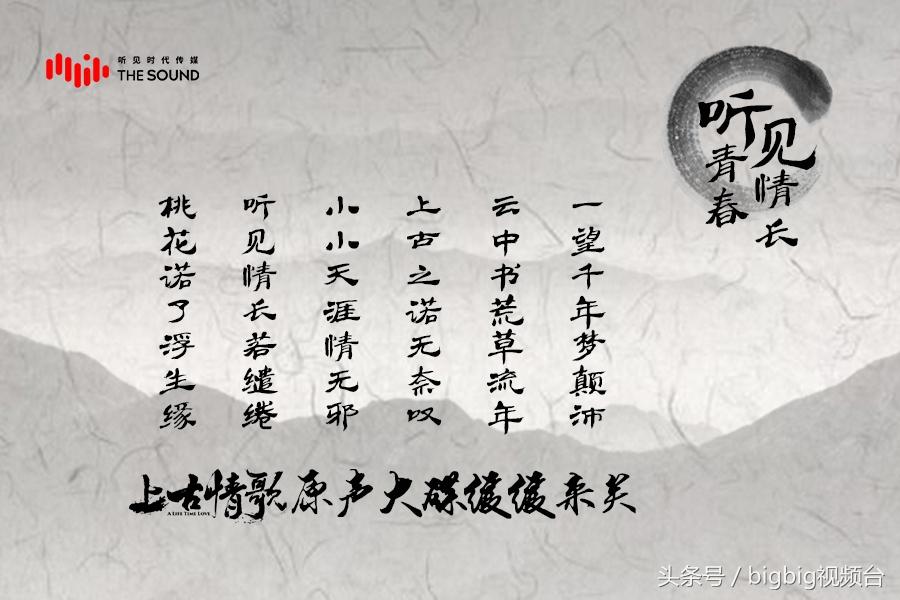 听见时代传媒
THE SOUND
听见
情长
青春
一望千年梦颠沛
云中书荒草流年
上古之诺无奈叹
小小天涯情无邪
听见情长若缱绻
桃花诺了浮生缘
上古情歌原声大碟缓缓来
A LIFE TIME LOVE
头条号 / bigbig视频台